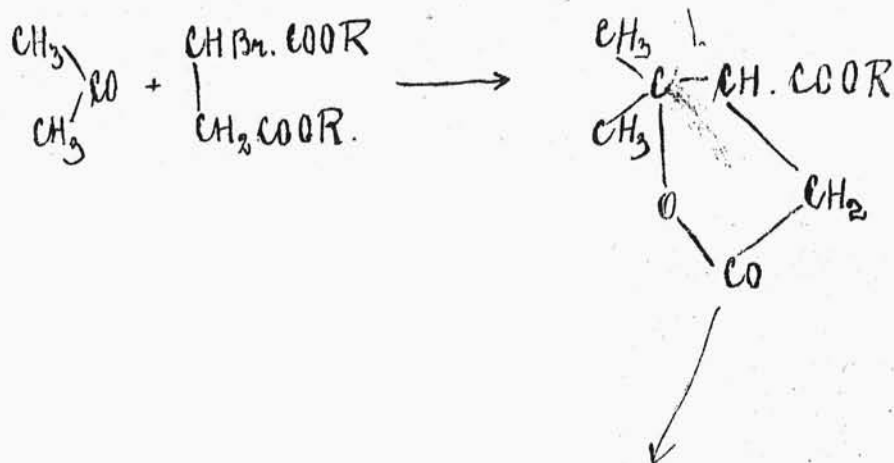 CH3
CH3
CO + CHBr.COOR
CH2COOR.
CH3
CH3
C - CH.COOR
O
CH2
CO